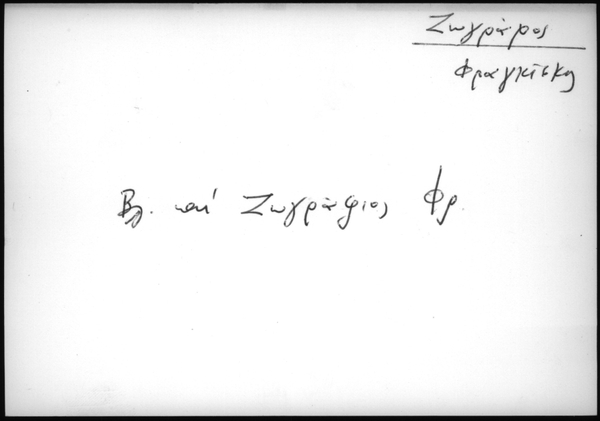 Ζωγράφος
Φραγκίσκος
Βλ. και Ζωγράφιος Φρ.